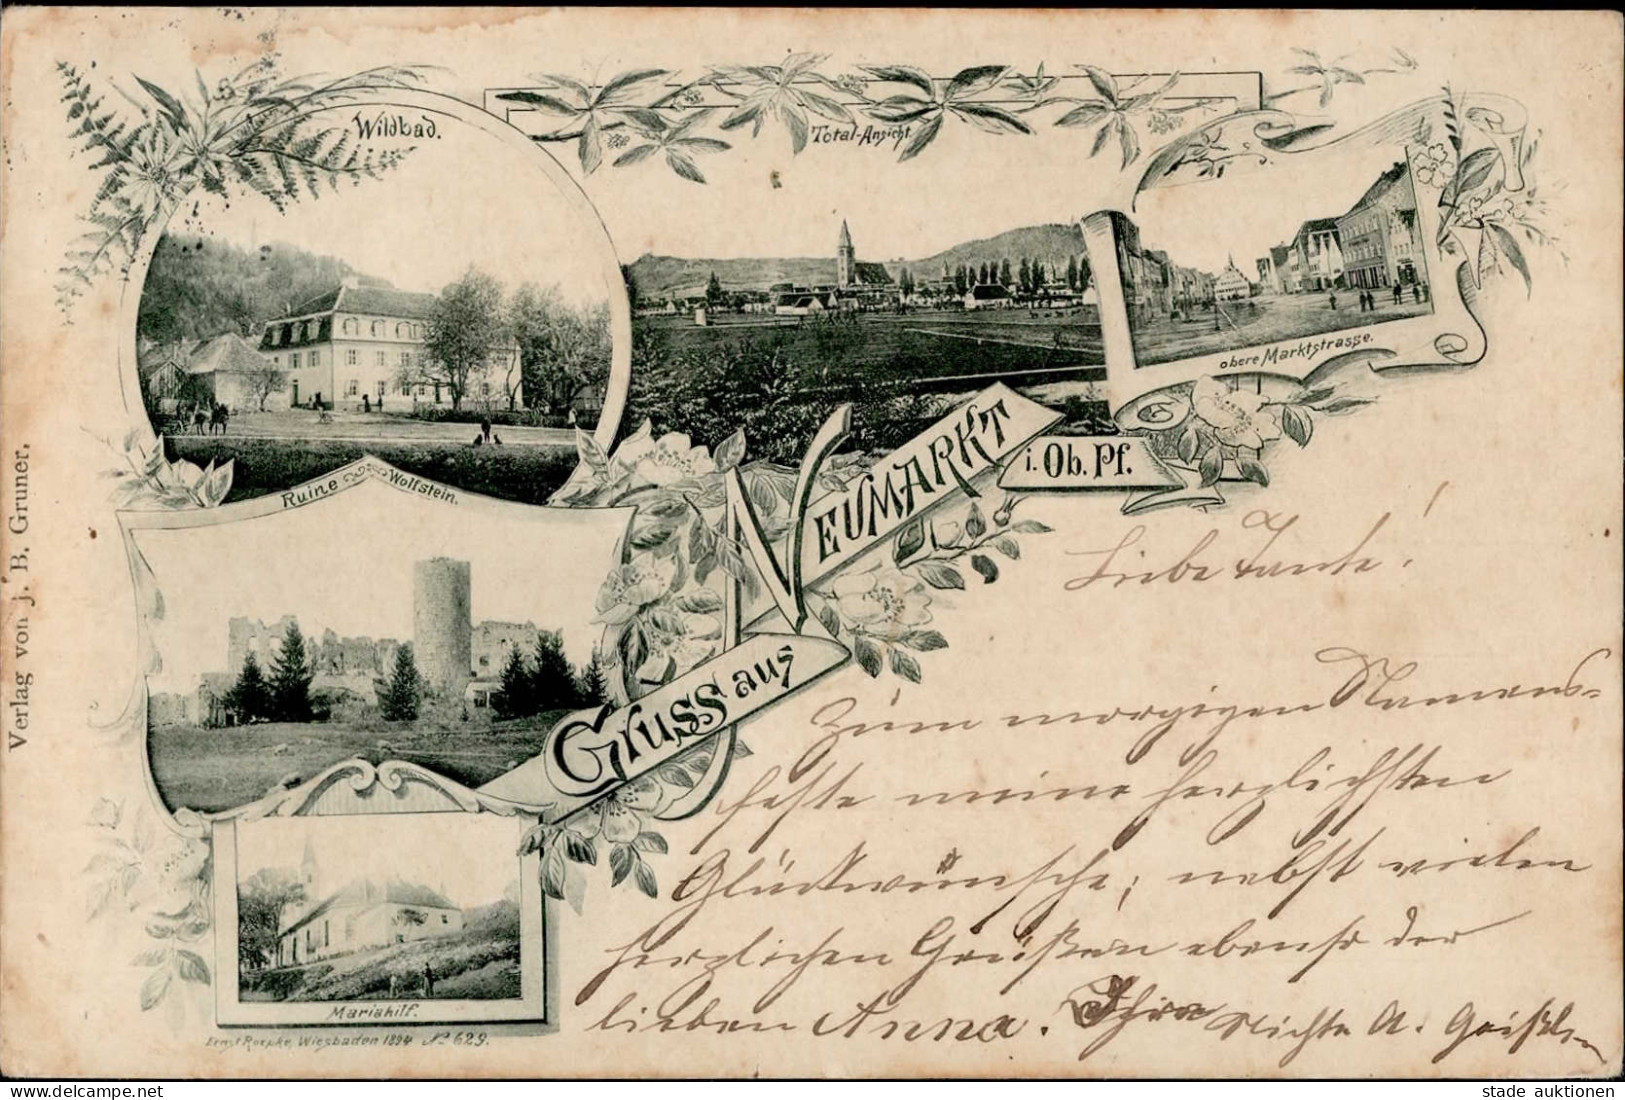 Wildbad.
Total-Ansicht
obere Marktstrasse.
Ruine Wolfstein.
Gruss aus
NEUMARKT
i. Ob. Pf.
Mariahilf.
Ernst Roepke, Wiesbaden 1894 No 629.
Verlag von J. B. Gruner.
Liebe Tante!
Zum morgigen Namens-
feste meine herzlichsten
Glückwünsche, nebst vielen
herzlichen Grüßen ebenso der
lieben Anna. Ihre Nichte A.
stade auktionen